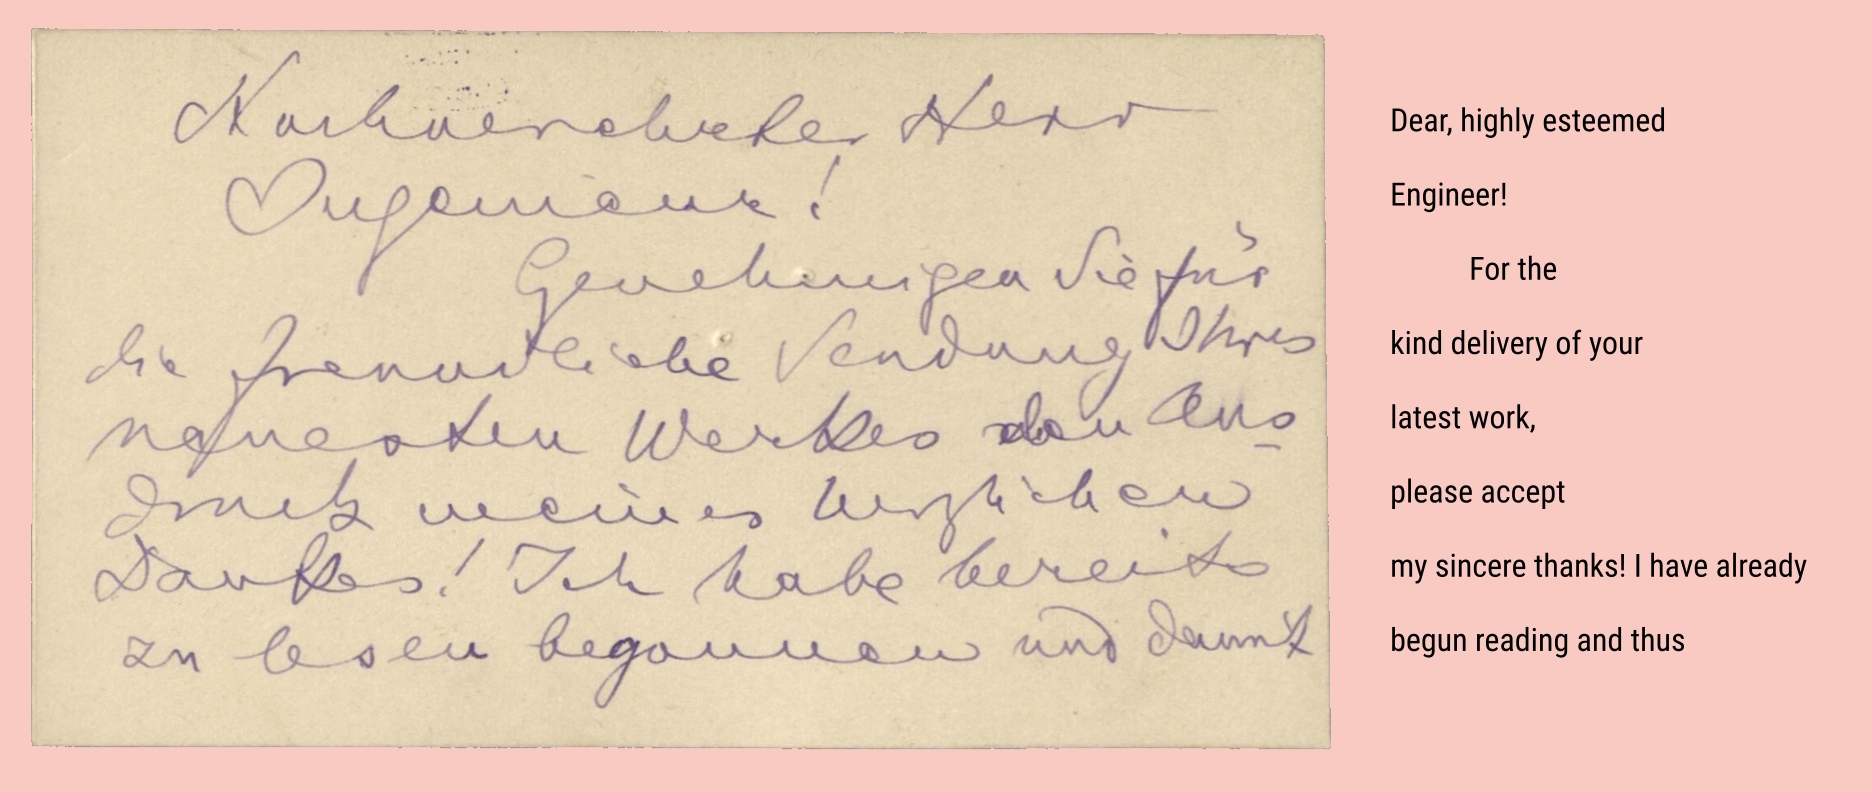 Hochverehrter Herr
Ingenieur!
Genehmigen Sie für
die freundliche Sendung Ihres
neuesten Werkes den Aus-
druck meines herzlichen
Dankes! Ich habe bereits
zu lesen begonnen und damit
Dear, highly esteemed
Engineer!
For the
kind delivery of your
latest work,
please accept
my sincere thanks! I have already
begun reading and thus